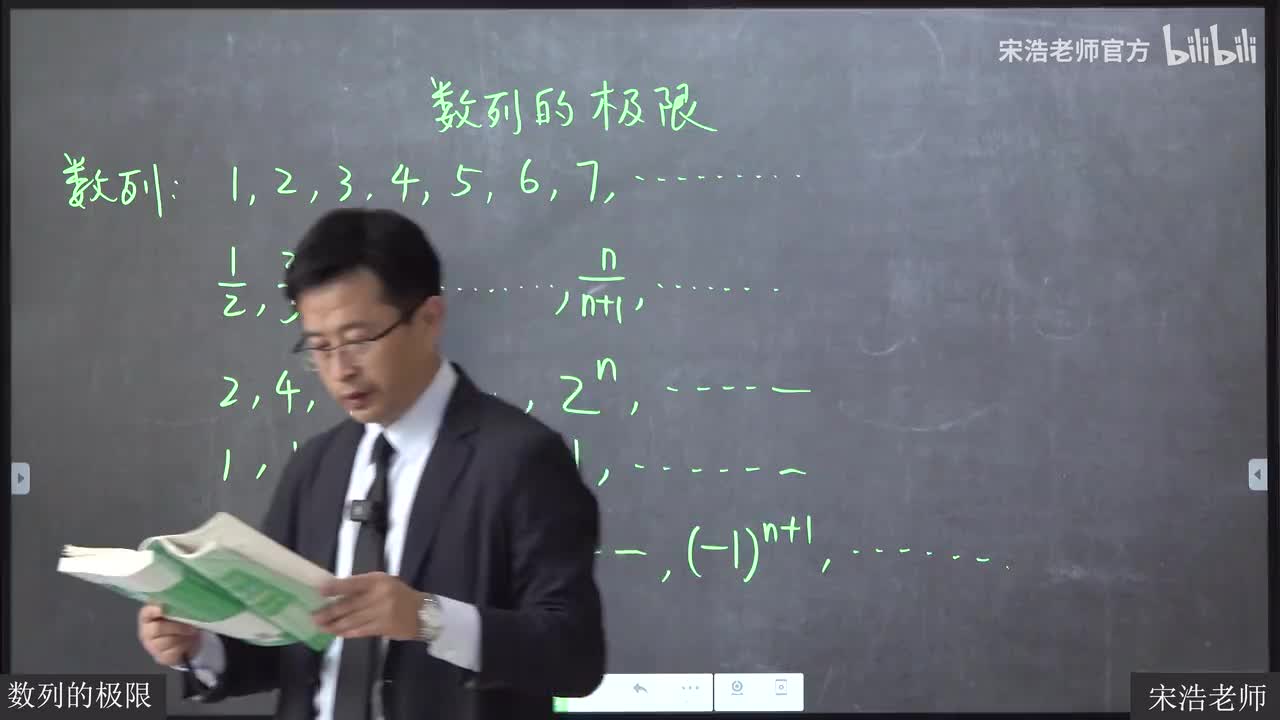 宋浩老师官方 bilibili
数列的极限
数列: 1, 2, 3, 4, 5, 6, 7, ..........
1/2, ........, n/(n+1), .......
2, 4, , 2^n, ------
1, 1, -------
—, (-1)^(n+1), .......
数列的极限
宋浩老师